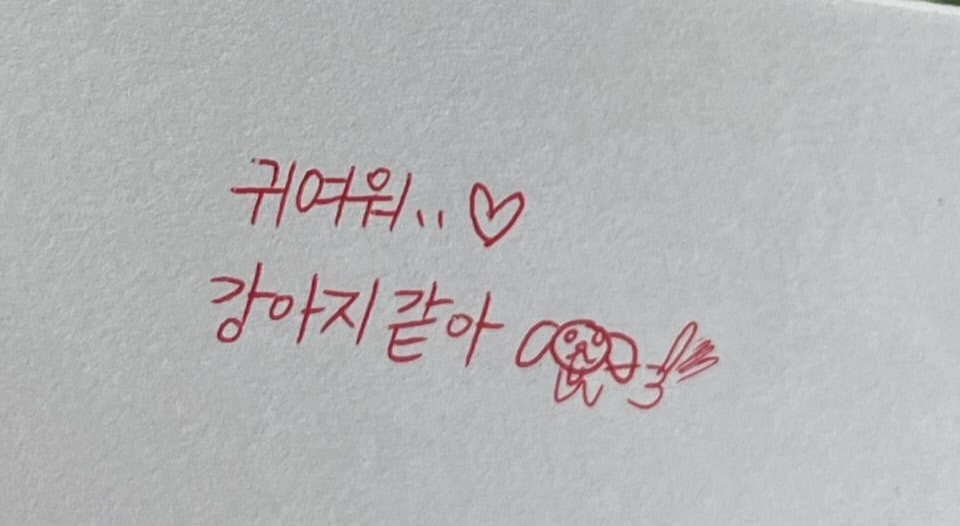 귀여워.. ♡
강아지 같아